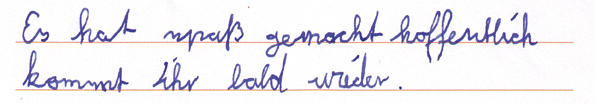 Es hat spaß gemacht hoffentlich
kommt ihr bald wieder.